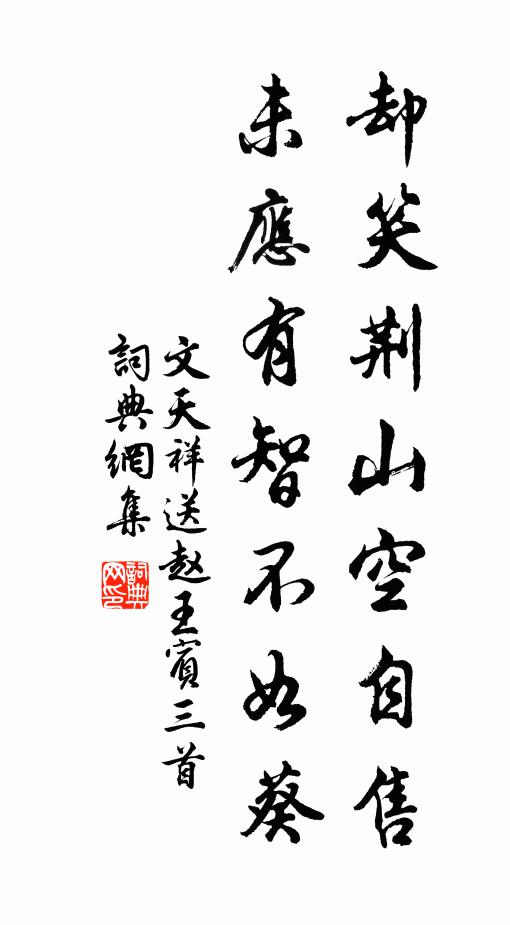 却笑荆山空自售
未應有智不如葵
文天祥送赵王賓三首
詞典網集
詞典网印